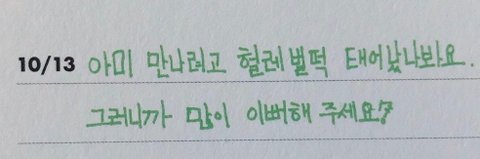 10/13 아미 만나려고 헐레벌떡 태어났나봐요.
그러니까 많이 이뻐해 주세요?